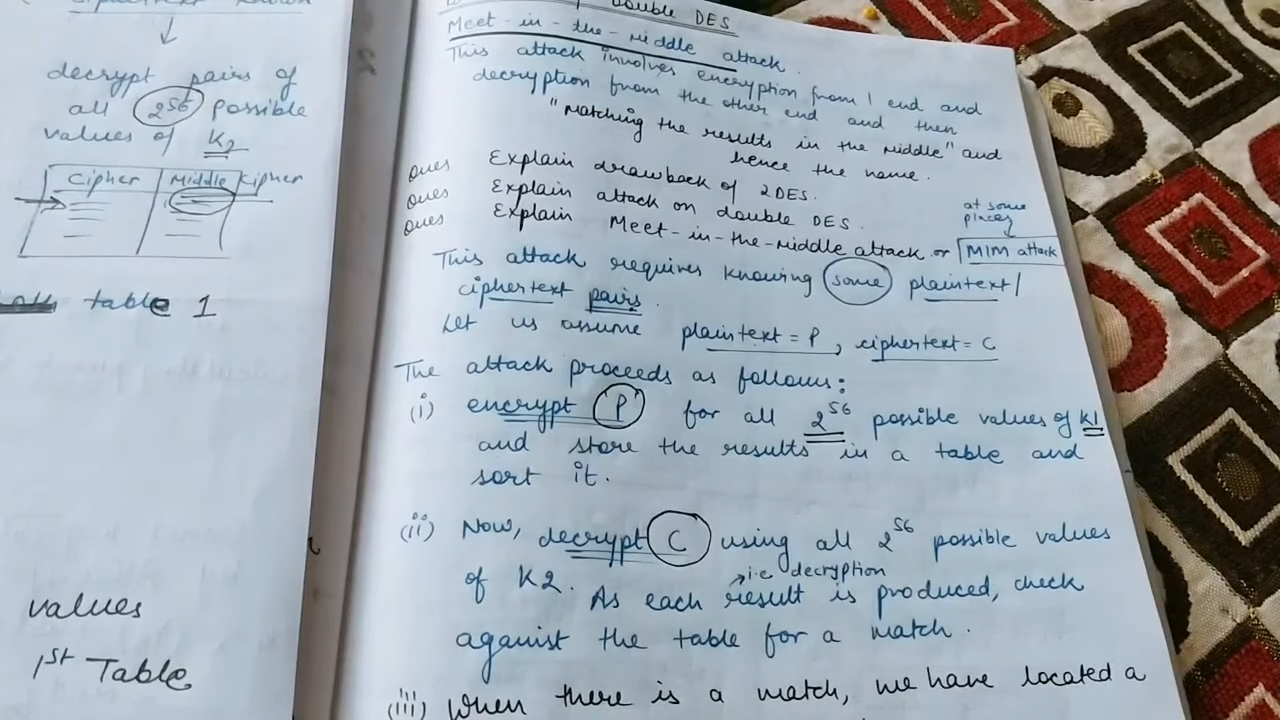 decrypt pairs of
all 2^56 possible
values of K2
Cipher | Middle Cipher
table 1
values
1st Table
double DES
Meet-in-the-Middle attack.
This attack involves encryption from 1 end and
decryption from the other end and then
"Matching the results in the middle" and
hence the name.
Ques Explain drawback of 2DES.
Ques Explain attack on double DES.
Ques Explain Meet-in-the-Middle attack or MIM attack
at some
places
This attack requires knowing some plaintext/
ciphertext pairs.
Let us assume plaintext = P, ciphertext = C
The attack proceeds as follows:
(i) encrypt 'P' for all 2^56 possible values of K1
and store the results in a table and
sort it.
(ii) Now, decrypt C using all 2^56 possible values
of K2. As each result is produced, check
i.e decryption
against the table for a match.
(iii) When there is a match, we have located a